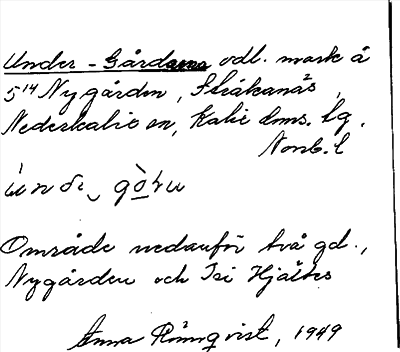 Under-Gårdarna odl. mark å
5¹⁴ Nygården, Stråkanäs,
Nederkalix sn, Kalix doms. lg.
Norrb. l
Område nedanför två gd.,
Nygården och Isi Hjältes
Anna Rönnqvist, 1949